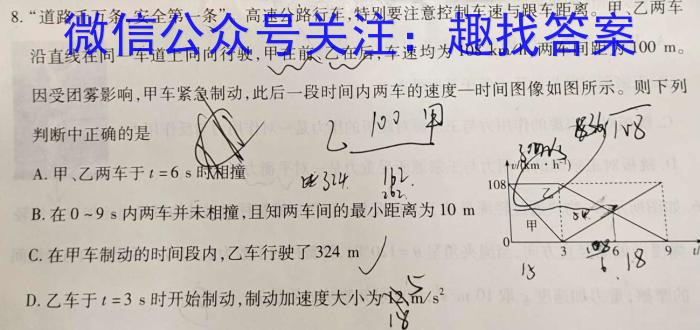 8. “道路千万条，安全第一条”，高速公路行车，特别要注意控制车速与跟车距离。甲、乙两车
微信公众号关注：趣找答案
沿直线在同一车道上同向行驶，甲在前、乙在后，车速均为108 km/h，两车间距为100 m。
因受团雾影响，甲车紧急制动，此后一段时间内两车的速度—时间图像如图所示。则下列
判断中正确的是
乙 100 甲
A. 甲、乙两车于t=6 s时相撞
324 162
B. 在0~9 s内两车并未相撞，且知两车间的最小距离为10 m
C. 在甲车制动的时间段内，乙车行驶了324 m
D. 乙车于t=3 s时开始制动，制动加速度大小为12 m/s²
15
18
v/(km·h⁻¹)
108
乙
甲
0 3 6 9 t/
15 18